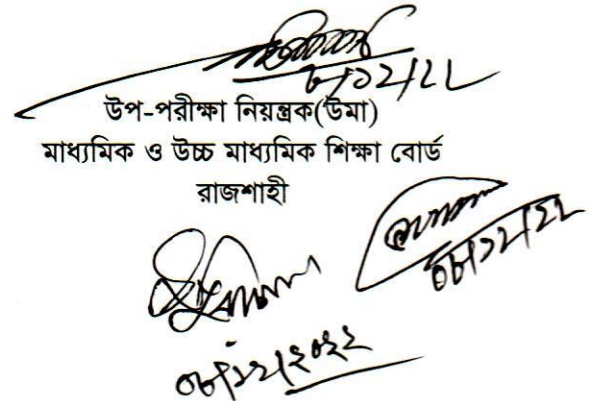 ৮/১২/২২
উপ-পরীক্ষা নিয়ন্ত্রক(উমা)
মাধ্যমিক ও উচ্চ মাধ্যমিক শিক্ষা বোর্ড
রাজশাহী
০৮/১২/২২
০৮/১২/২০২২